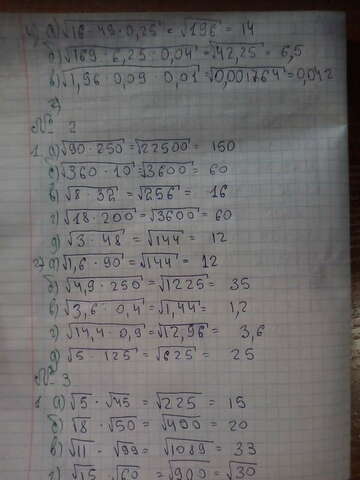 4) а) √16 · 49 · 0,25 = √196 = 14
б) √169 · 6,25 · 0,04 = √42,25 = 6,5
в) √1,96 · 0,09 · 0,01 = √0,001764 = 0,042
г)
№ 2
1. а) √90 · 250 = √22500 = 150
б) √360 · 10 = √3600 = 60
в) √8 · 32 = √256 = 16
г) √18 · 200 = √3600 = 60
д) √3 · 48 = √144 = 12
2. а) √1,6 · 90 = √144 = 12
б) √4,9 · 250 = √1225 = 35
в) √3,6 · 0,4 = √1,44 = 1,2
г) √14,4 · 0,9 = √12,96 = 3,6
д) √5 · 125 = √625 = 25
№ 3
1. а) √5 · √45 = √225 = 15
б) √8 · √50 = √400 = 20
в) √11 · √99 = √1089 = 33
г) √15 · √60 = √900 = √30